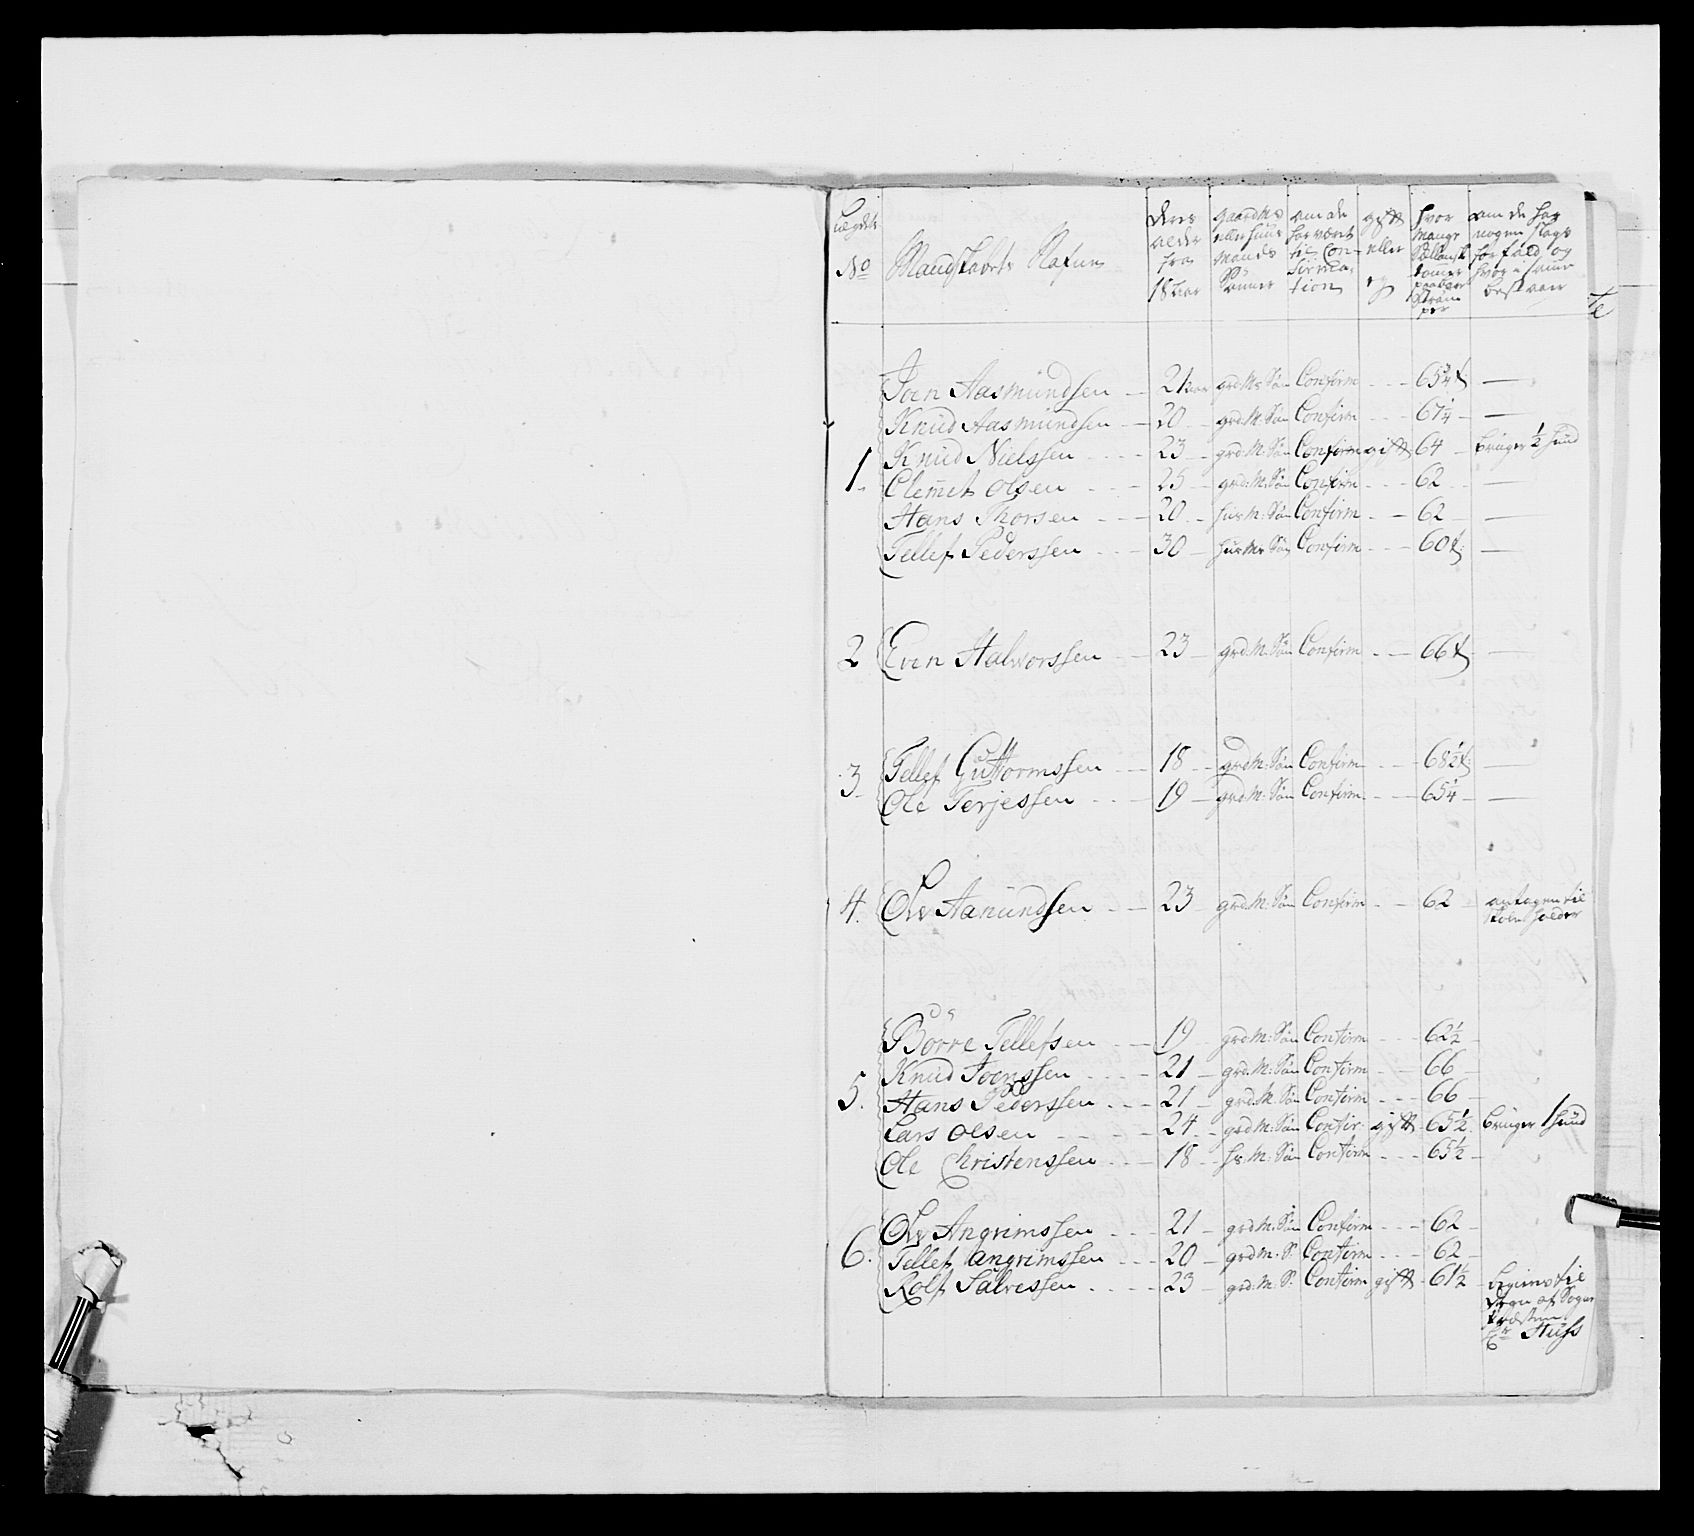 Lægdets No
Mandskabets Nafne
deres alder fra 18 aar
gaardMs eller huus Mands Sønner
om de har været til Confirmation
gift eller ej
hvor Mange Sællansk tomer
om de har nogen slags forfald og hvor i samme bestaaer
te
Joen Aasmundsen 21 aar grd:Ms Søn Confirm 65 3/4 t:
Knud Aasmundsen 20 grd:M:Søn Confirm 67 1/4
Knud Nielssen 23 grd:M:Søn Confirm gift 64 bruger 1/2 huud
1. Clemet Olsen 25 grd:M:Søn Confirm 62
Hans Thorsen 20 hus M:Søn Confirm 62
Tellef Pederssen 30 hus Ms Søn Confirm 60 t:
2 Even Halvorssen 23 grd:M:Søn Confirm 66 t:
3 Tellef Guttormssen 18 grd:M:Søn Confirm 68 1/2 t:
Ole Terjessen 19 grd:M:Søn Confirm 65 1/4
4. Olv Aamundsen 23 grd:M:Søn Confirm 62 antagen til
Skoleholder
Børre Tellefsen 19 grd:M:Søn Confirm 62 1/2
Knud Joenssen 21 grd:M:Søn Confirm 66
5. Hans Pederssen 21 grd:M:Søn Confirm 66
Lars Olsen 24 grd:M:Søn Confir: gift 65 1/2 bruger 1 huud
Ole Christenssen 18 hs:M:Søn Confirm 65 1/2
Olv Angrimssen 21 grd:M:Søn Confirm 62
6. Tellef Angrimssen 20 grd:M:S: Confirm 62
Rolf Salvessen 23 grd:M:S: Confirm gift 61 1/2
til
af Sogne
Hr Huss